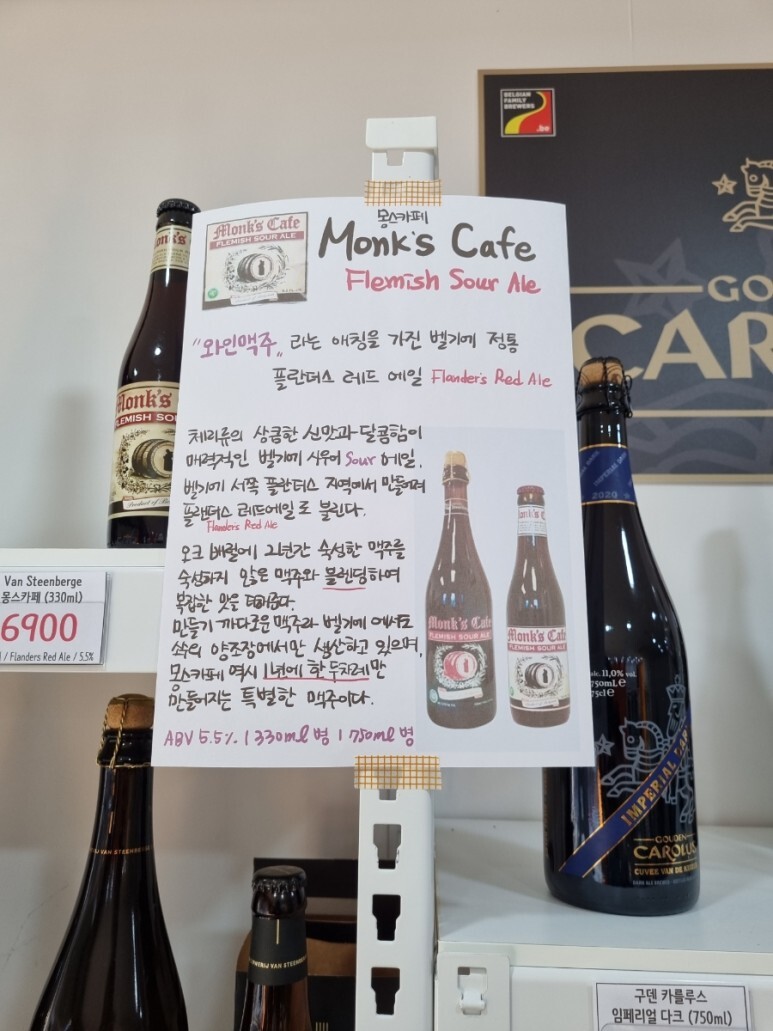 BELGIAN
FAMILY
BREWERS
.be
몽스카페
Monk's Cafe
Flemish Sour Ale
Monk's Cafe
FLEMISH SOUR ALE
"와인맥주" 라는 애칭을 가진 벨기에 정통
플란더스 레드 에일 Flander's Red Ale
체리류의 상큼한 신맛과 달콤함이
매력적인 벨기에 사우어 Sour 에일.
벨기에 서쪽 플란더스 지역에서 만들어져
플랜더스 레드에일로 불린다.
Flander's Red Ale
오크 배럴에 2년간 숙성한 맥주를
숙성하지 않은 맥주와 블렌딩하여
복잡한 맛을 더해준다.
만들기 까다로운 맥주라 벨기에 에서도
소수의 양조장에서만 생산하고 있으며,
몽스카페 역시 1년에 한 두차례만
만들어지는 특별한 맥주이다.
ABV 5.5% | 330ml 병 | 750ml 병
Monk's Cafe
FLEMISH SOUR ALE
Monk's Cafe
FLEMISH SOUR ALE
Monk's
FLEMISH SOU
Product of
Van Steenberge
몽스카페 (330ml)
6900
/ Flanders Red Ale / 5.5%
GO
CAR
IMPERIAL DAR
2020
alc. 11,0% vol.
750mL e
75cl e
IMPERIAL DAR
GOUDEN
CAROLUS
CUVEE VAN DE KEIZER
ERIJ VAN STEENBER
ERIJ VAN STEENB
구덴 카를루스
임페리얼 다크 (750ml)